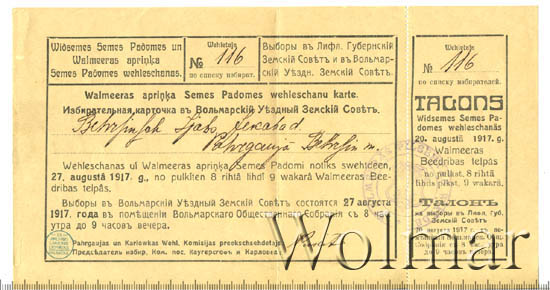 Widsemes Semes Padomes un
Walmeeras apriņķa
Semes Padomes wehleschanas.
Wehletajs
№ 116
по списку избират.
Выборы въ Лифл. Губернскій
Земскій Совѣтъ и въ Вольмар-
скій Уѣздн. Земскій Совѣтъ.
Walmeeras apriņķa Semes Padomes wehleschanu karte.
Избирательная карточка въ Вольмарскій Уѣздный Земскій Совѣтъ.
Wehleschanas uf Walmeeras apriņķa Semes Padomi notiks swehtdeen,
27. augustā 1917. g., no pulksten 8 rihtā lihdz 9 wakarā Walmeeras Bee-
dribas telpās.
Выборы въ Вольмарскій Уѣздный Земскій Совѣтъ состоятся 27 августа
1917. года въ помѣщеніи Вольмарскаго Общественнаго Собранія съ 8 час.
утра до 9 часовъ вечера.
Pahrgaujas un Karlowkas Wehl. Komisijas preekschsehdetajs
Предсѣдатель избир. Ком. пос. Каугерсгофъ и Карловка
Wehletajs
№ 116
по списку избирателей.
TALONS
Widsemes Semes Pa-
domes wehleschanās
20. augustā 1917. g.
Walmeeras
Beedribas telpās
no pulkst. 8 rihtā
lihds plkst. 9 wakarā.
Талонъ
на выборы въ Лифл. Губ.
Земскій Совѣтъ
Wolmar